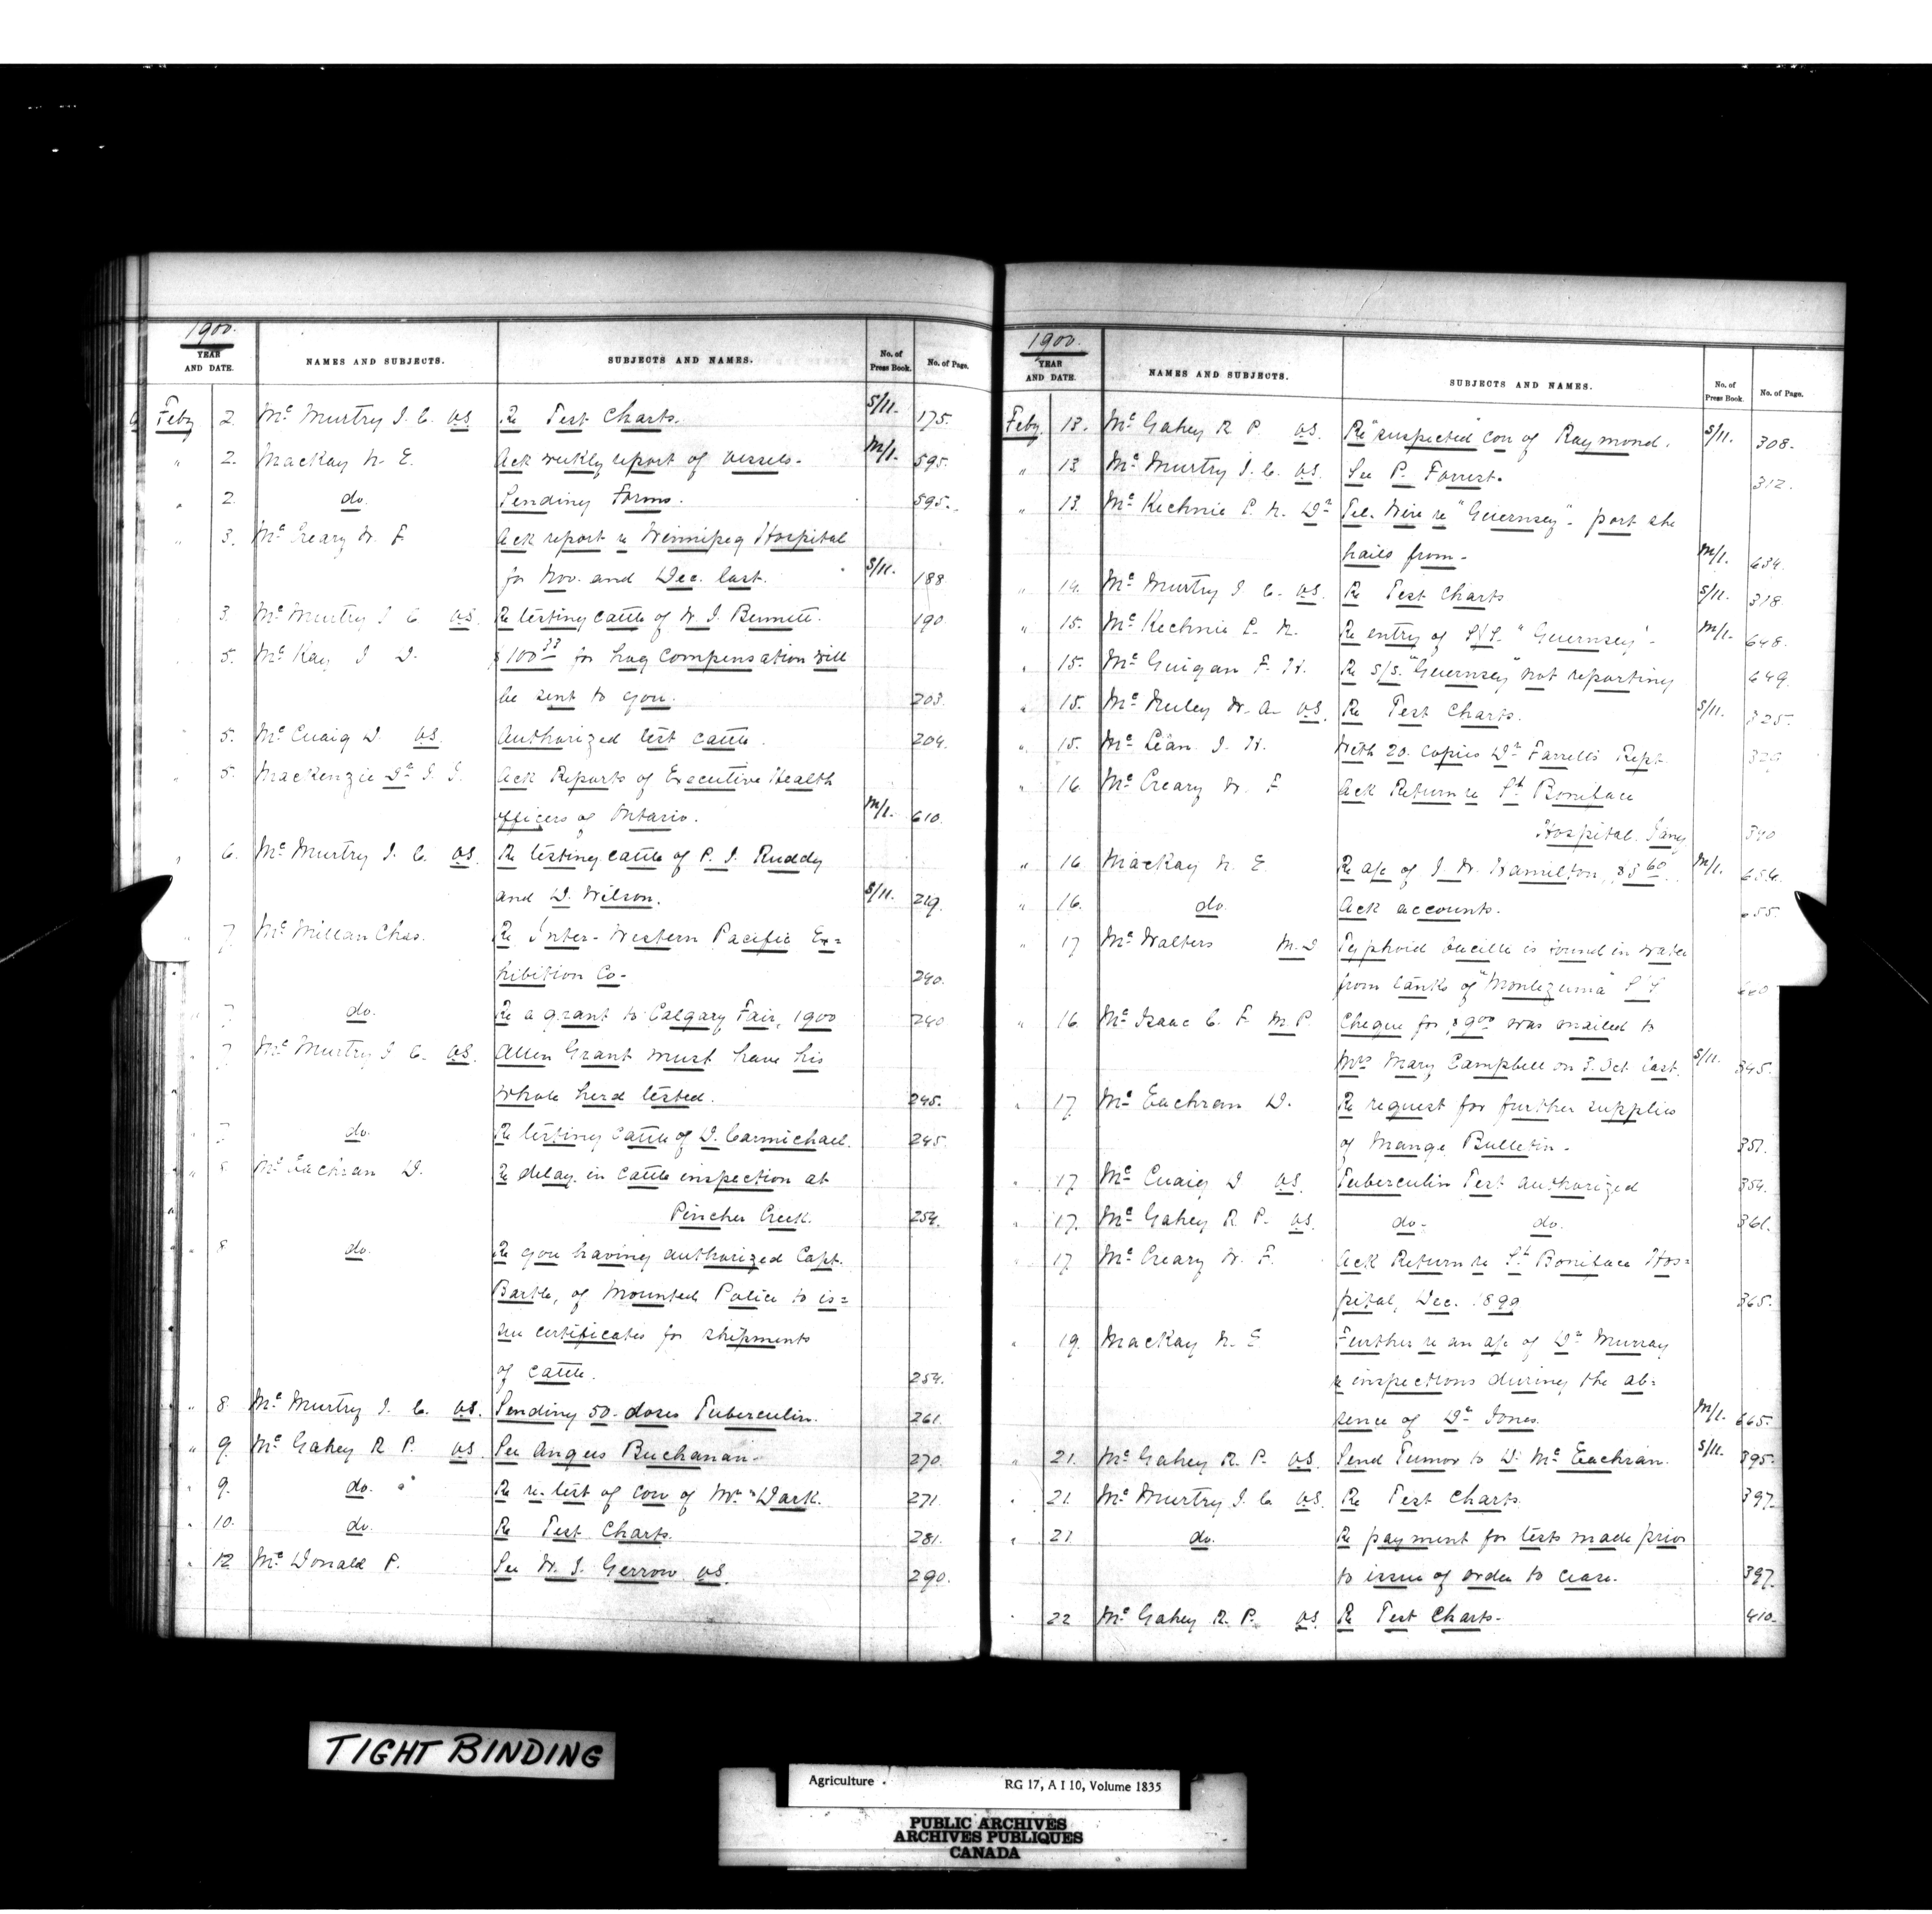 1900.
YEAR AND DATE. NAMES AND SUBJECTS. SUBJECTS AND NAMES. No. of Press Book. No. of Page.
Feby 2. Mc Murtry J. C. V.S. Re Test Charts. S/11. 175.
" 2. MacKay N. E. Ack weekly report of vessels. M/1. 595.
" 2. do. Sending Forms. 595.
" 3. Mc Creary W. F. Ack report re Winnipeg Hospital
for Nov. and Dec. last. S/11. 188
3. Mc Murtry J C V.S. Re testing cattle of W. J. Bennett. 190
5. Mc Kay J D. $100 33 for hog compensation will
be sent to you. 203.
5. Mc Cuaig D V.S. Authorized test cattle. 204.
" 5. MacKenzie Dr J. J. Ack Reports of Executive Health
officers of Ontario. M/1. 610.
" 6. Mc Murtry J. C. V.S. Re testing cattle of P. J. Ruddy
and D. Wilson. S/11. 219.
" 7. Mc Millan Chas. Re Inter-Western Pacific Ex=
hibition Co- 240.
" 7 do. Re a grant to Calgary Fair, 1900 240
" 7 Mc Murtry J C. V.S. Allen Grant must have his
whole herd tested. 245.
" 7 do. Re testing cattle of D. Carmichael. 245.
" Mc Eachran D. Re delay in cattle inspection at
Pincher Creek. 254.
" 8 do. Re you having authorized Capt.
Bartle, of Mounted Police to is=
sue certificates for shipments
of cattle. 254.
" 8 Mc Murtry J. C. V.S. Sending 50. doses Tuberculin. 261.
" 9. Mc Gahey R P. V.S. See Angus Buchanan- 270.
" 9. do. Re re-test of cow of Mr Wark. 271.
" 10. do. Re Test Charts. 281.
" 12 Mc Donald P. See W. J. Gerrow V.S. 290.
1900.
YEAR AND DATE. NAMES AND SUBJECTS. SUBJECTS AND NAMES. No. of Press Book. No. of Page.
Feby. 13. Mc Gahey R P. V.S. Re "suspected" cow of Raymond. S/11. 308.
" 13 Mc Murtry J. C. V.S. See P. Forrest. 312.
" 13. Mc Kechnie P. N. Dr Tel. Wire re "Guernsey"- port she
hails from- M/1. 634.
" 14. Mc Murtry J C. V.S. Re Test Charts S/11. 318.
" 15. Mc Kechnie P. N. Re entry of S/S. "Guernsey"- M/1. 648.
" 15. Mc Guigan F. H. Re S/S. "Guernsey" not reporting 649.
" 15. Mc Neiley W. A. V.S. Re Test Charts. S/11. 325.
" 15. Mc Lean. J. H. With 20. copies Dr Farrell's Rept
" 16. Mc Creary W. F Ack Return re St Boniface
Hospital. Jany 340
" 16 MacKay N. E Re a/c of J. W. Hamilton, $5 60. M/1. 656.
" 16. do. Ack accounts. 655.
" 17 Mc Walters M.D Typhoid bacilli is found in water
from tanks of "Montezuma" S/S
" 16 Mc Isaac C. F. M.P. Cheque for $9 00 was mailed to
Mrs Mary Campbell on 3. Oct. last. S/11. 345.
" 17 Mc Eachran D. Re request for further supplies
of Mange Bulletin- 351.
" 17 Mc Cuaig D V.S. Tuberculin Test authorized 354.
" 17. Mc Gahey R P- V.S. do- do. 361.
17 Mc Creary W. F. Ack Return re St Boniface Hos=
pital, Dec. 1899 365.
" 19. MacKay N. E Further re an a/c of Dr Murray
re inspections during the ab=
sence of Dr Jones. M/1. 665.
" 21. Mc Gahey R. P. V.S. Send Tumor to D. Mc Eachran. S/11. 395.
" 21. Mc Murtry J. C. V.S. Re Test Charts. 397
" 21 do. Re payment for tests made prior
to issue of order to cease. 397.
22 Mc Gahey R. P. V.S Re Test Charts- 410.
TIGHT BINDING
Agriculture RG 17, A I 10, Volume 1835
PUBLIC ARCHIVES
ARCHIVES PUBLIQUES
CANADA